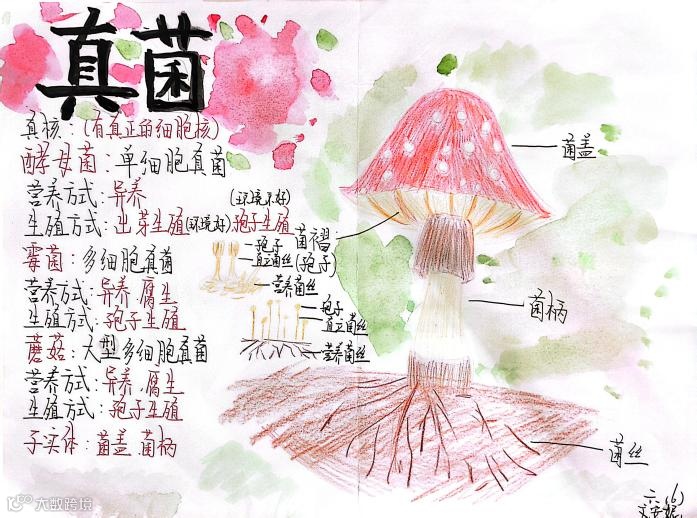 真菌
真核：(有真正的细胞核)
酵母菌：单细胞真菌
营养方式：异养
(环境不好)
生殖方式：出芽生殖(环境好).孢子生殖
霉菌：多细胞真菌
营养方式：异养.腐生
生殖方式：孢子生殖
蘑菇：大型多细胞真菌
营养方式：异养.腐生
生殖方式：孢子生殖
子实体：菌盖.菌柄
孢子
直立菌丝
营养菌丝
孢子
直立菌丝
营养菌丝
菌盖
菌褶：
(孢子)
菌柄
菌丝
六(6)
大数跨境